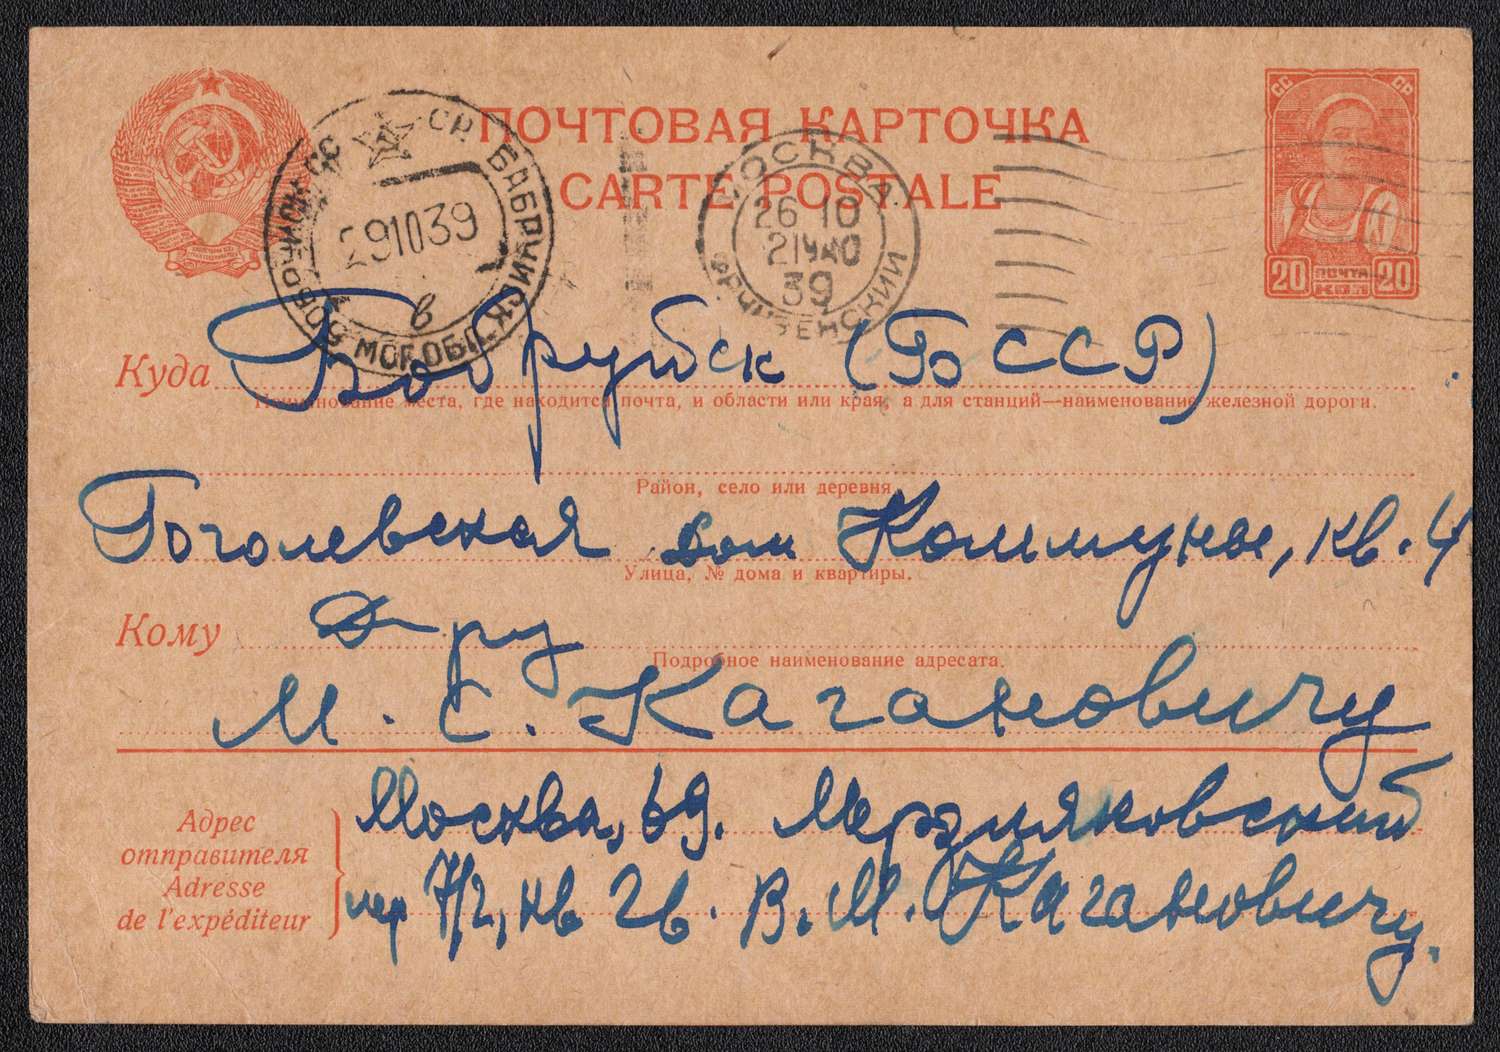 ПОЧТОВАЯ КАРТОЧКА
CARTE POSTALE
СС СР
20 ПОЧТА КОП 20
СССР БАБРУЙСК
БОБРУЙСК МОГ. ОБЛ.
291039
в
МОСКВА
26 10
21 40
39
ФРУНЗЕНСКИЙ
Куда Бобруйск (БССР)
Наименование места, где находится почта, и области или края, а для станций—наименование железной дороги.
Район, село или деревня.
Гоголевская дом Коммуны, кв. 4
Улица, № дома и квартиры.
Кому Д-ру
Подробное наименование адресата.
М. С. Кагановичу
Адрес
отправителя
Adresse
de l'expéditeur
Москва, 69. Мерзляковский
пер 7/2, кв 2в. В. М. Кагановичу.